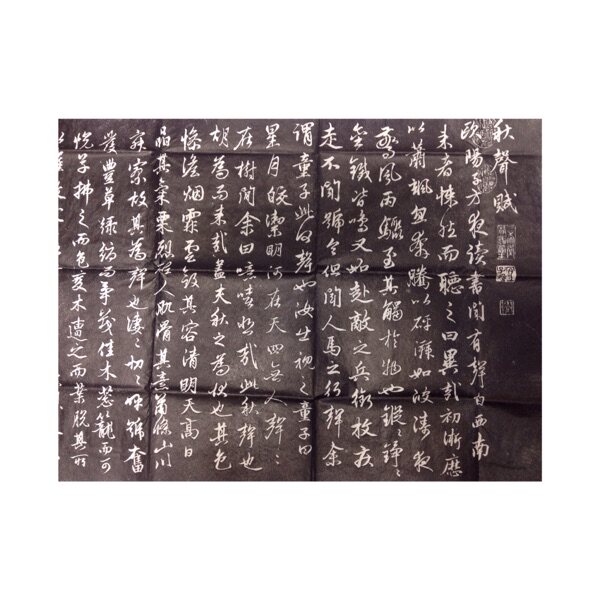 秋聲賦
歐陽子方夜讀書聞有聲自西南
来者悚然而聽之曰異哉初淅瀝
以蕭颯忽奔騰以砰湃如波濤夜
驚風雨驟至其觸於物也鏦々錚々
金鐵皆鳴又如赴敵之兵銜枚疾
走不聞號令但聞人馬之行聲余
謂童子此何聲也汝出視之童子曰
星月皎潔明河在天四無人聲々
在樹間余曰噫嘻悲哉此秋聲也
胡為而来哉盖夫秋之為狀也其色
慘澹烟霏雲斂其容清明天高日
晶其氣栗冽砭人肌骨其意蕭條山川
寂寥故其為聲也淒々切々呼號奮
發豐草綠縟而爭茂佳木葱蘢而可
悦草拂之而色變木遭之而葉脱其所